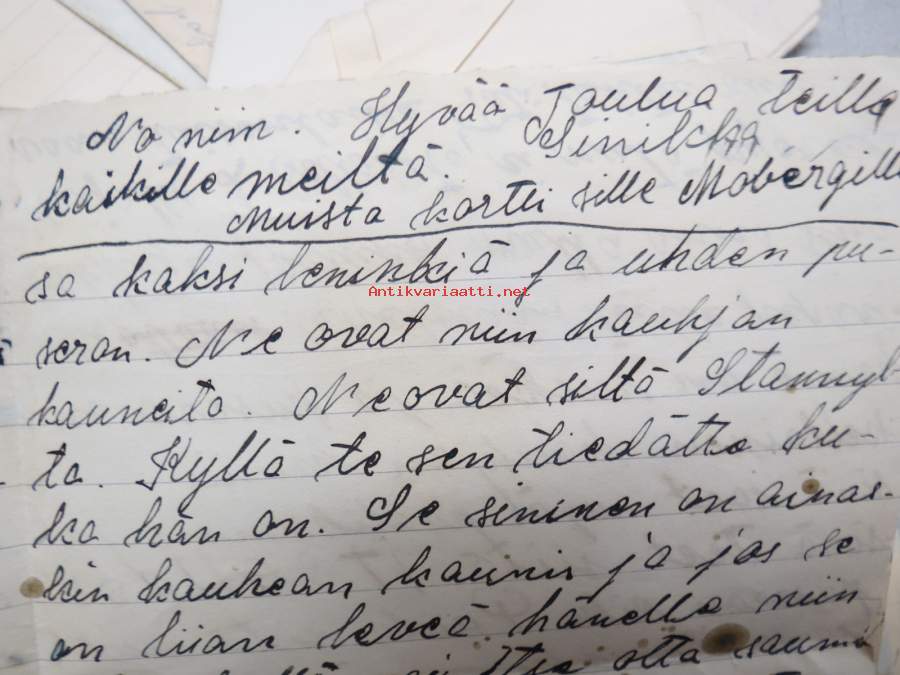 No niin. Hyvää Joulua teille
kaikille meiltä. Sinikka
Muista kortti sille Mobergille
sa kaksi leninkiä ja uhden pu-
seron. Ne ovat niin kauhjan
kauneita. Ne ovat siltä
ta. Kyllä te sen tiedätte ku-
ka hän on. Se sininen on ainas-
kin kauhean kaunis ja jos se
on liian leveä hänelle niin
itse otta sauma
Antikvariaatti.net